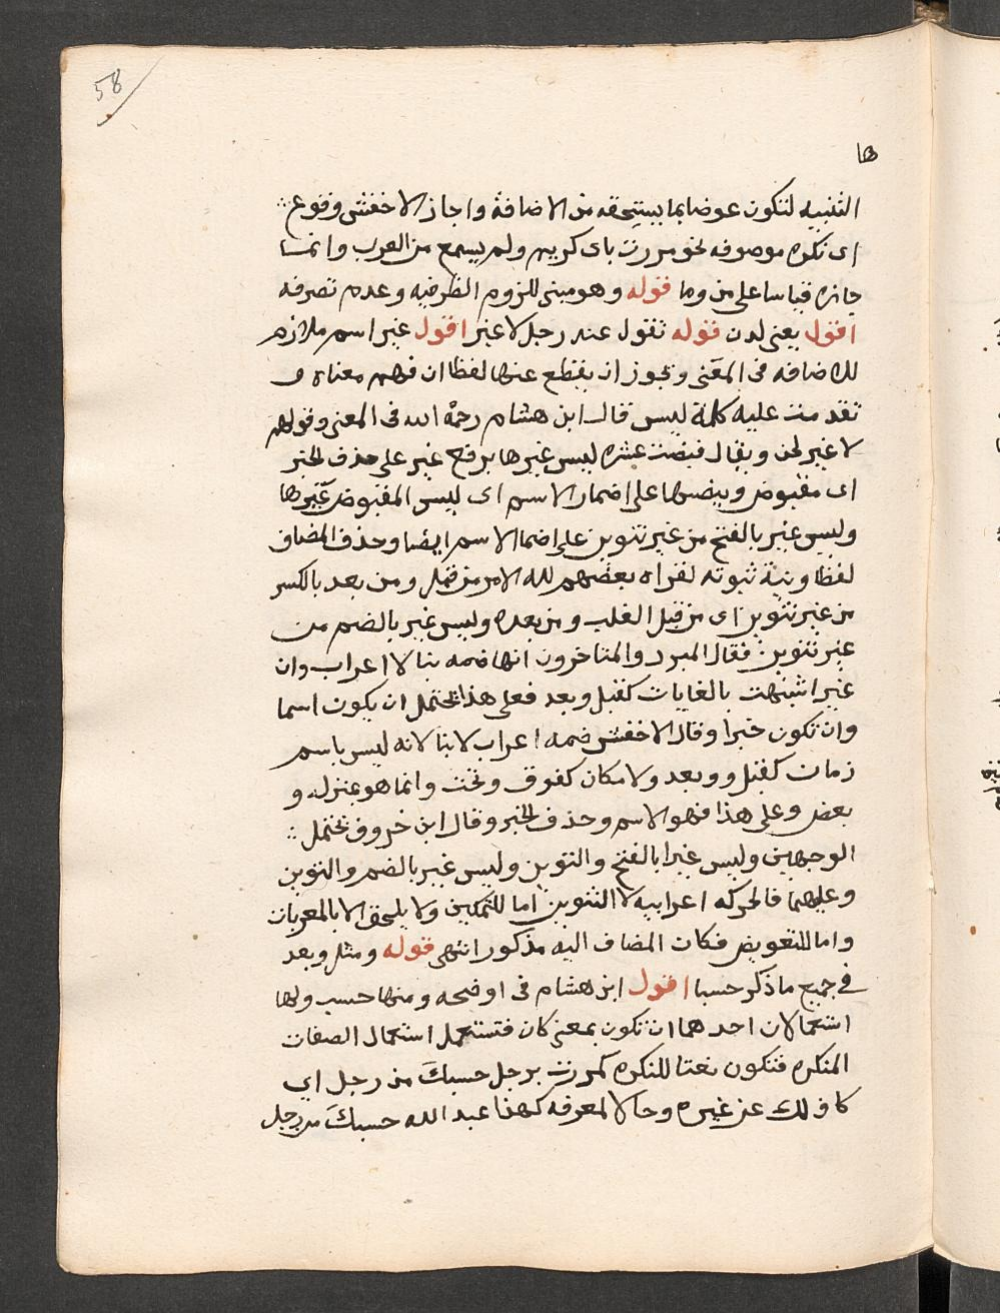 58
ها
التنبيه لتكون عوضا بما يستحقه من الاضافة واجاز الاخفش وقوع
اى نكره موصوفه نحو مررت باى كريم ولم يسمع من العرب وانما
جازه قياسا على من وما قوله وهو مبنى للزوم الظرفيه وعدم تصرفه
اقول يعنى لدن قوله تقول عنه رجل لا غير اقول غير اسم ملازم
للاضافه فى المعنى ويجوز ان يقطع عنها لفظا ان فهم معناه و
تقدمت عليه كلمة ليس قال ابن هشام رحمة الله فى المعنى وقولهم
لا غير لحن ويقال قبضت عشره ليس غيرها برفع غير على حذف الخبر
اى مقبوض وبنصبها على اضمار الاسم اى ليس المقبوض غيرها
وليس غير بالفتح من غير تنوين على اضما الاسم ايضا وحذف المضاف
لفظا ونية ثبوته لقراه بعضهم لله الامر من قبل ومن بعد بالكسر
من غير تنوين اى من قبل الغلب ومن بعده وليس غير بالضم من
غير تنوين فقال المبرد والمتاخرون انها ضمه بنا لا اعراب وان
غير اشبهت بالغايات كقبل وبعد فعلى هذا يحتمل ان يكون اسما
وان تكون خبرا وقال الاخفش ضمه اعراب لا بنا لانه ليس باسم
زمان كقبل و وبعد ولا مكان كفوق وتحت وانما هو بمنزله و
بعض وعلى هذا فهو الاسم وحذف الخبر وقال ابن خروف يحتمل
الوجهين وليس غيرا بالفتح والتوين وليس غير بالضم والتوين
وعليهما فالحركه اعرابيه لا التنوين اما للتمكين ولا يلحق الا بالمعربات
واما للتعويض فكان المضاف اليه مذكور انتهى قوله ومثل وبعد
فى جميع ما ذكر حسبا اقول ابن هشام فى اوضحه ومنها حسب ولها
اشتعمالان احدهما ان تكون بمعنى كان فتستعمل استعمال الصفات
المنكره فتكون نعتا للنكره كمررت برجل حسبكَ من رجل اي
كاف لك عن غيره وحالا لمعرفه كهذا عبد الله حسبكَ من رجل